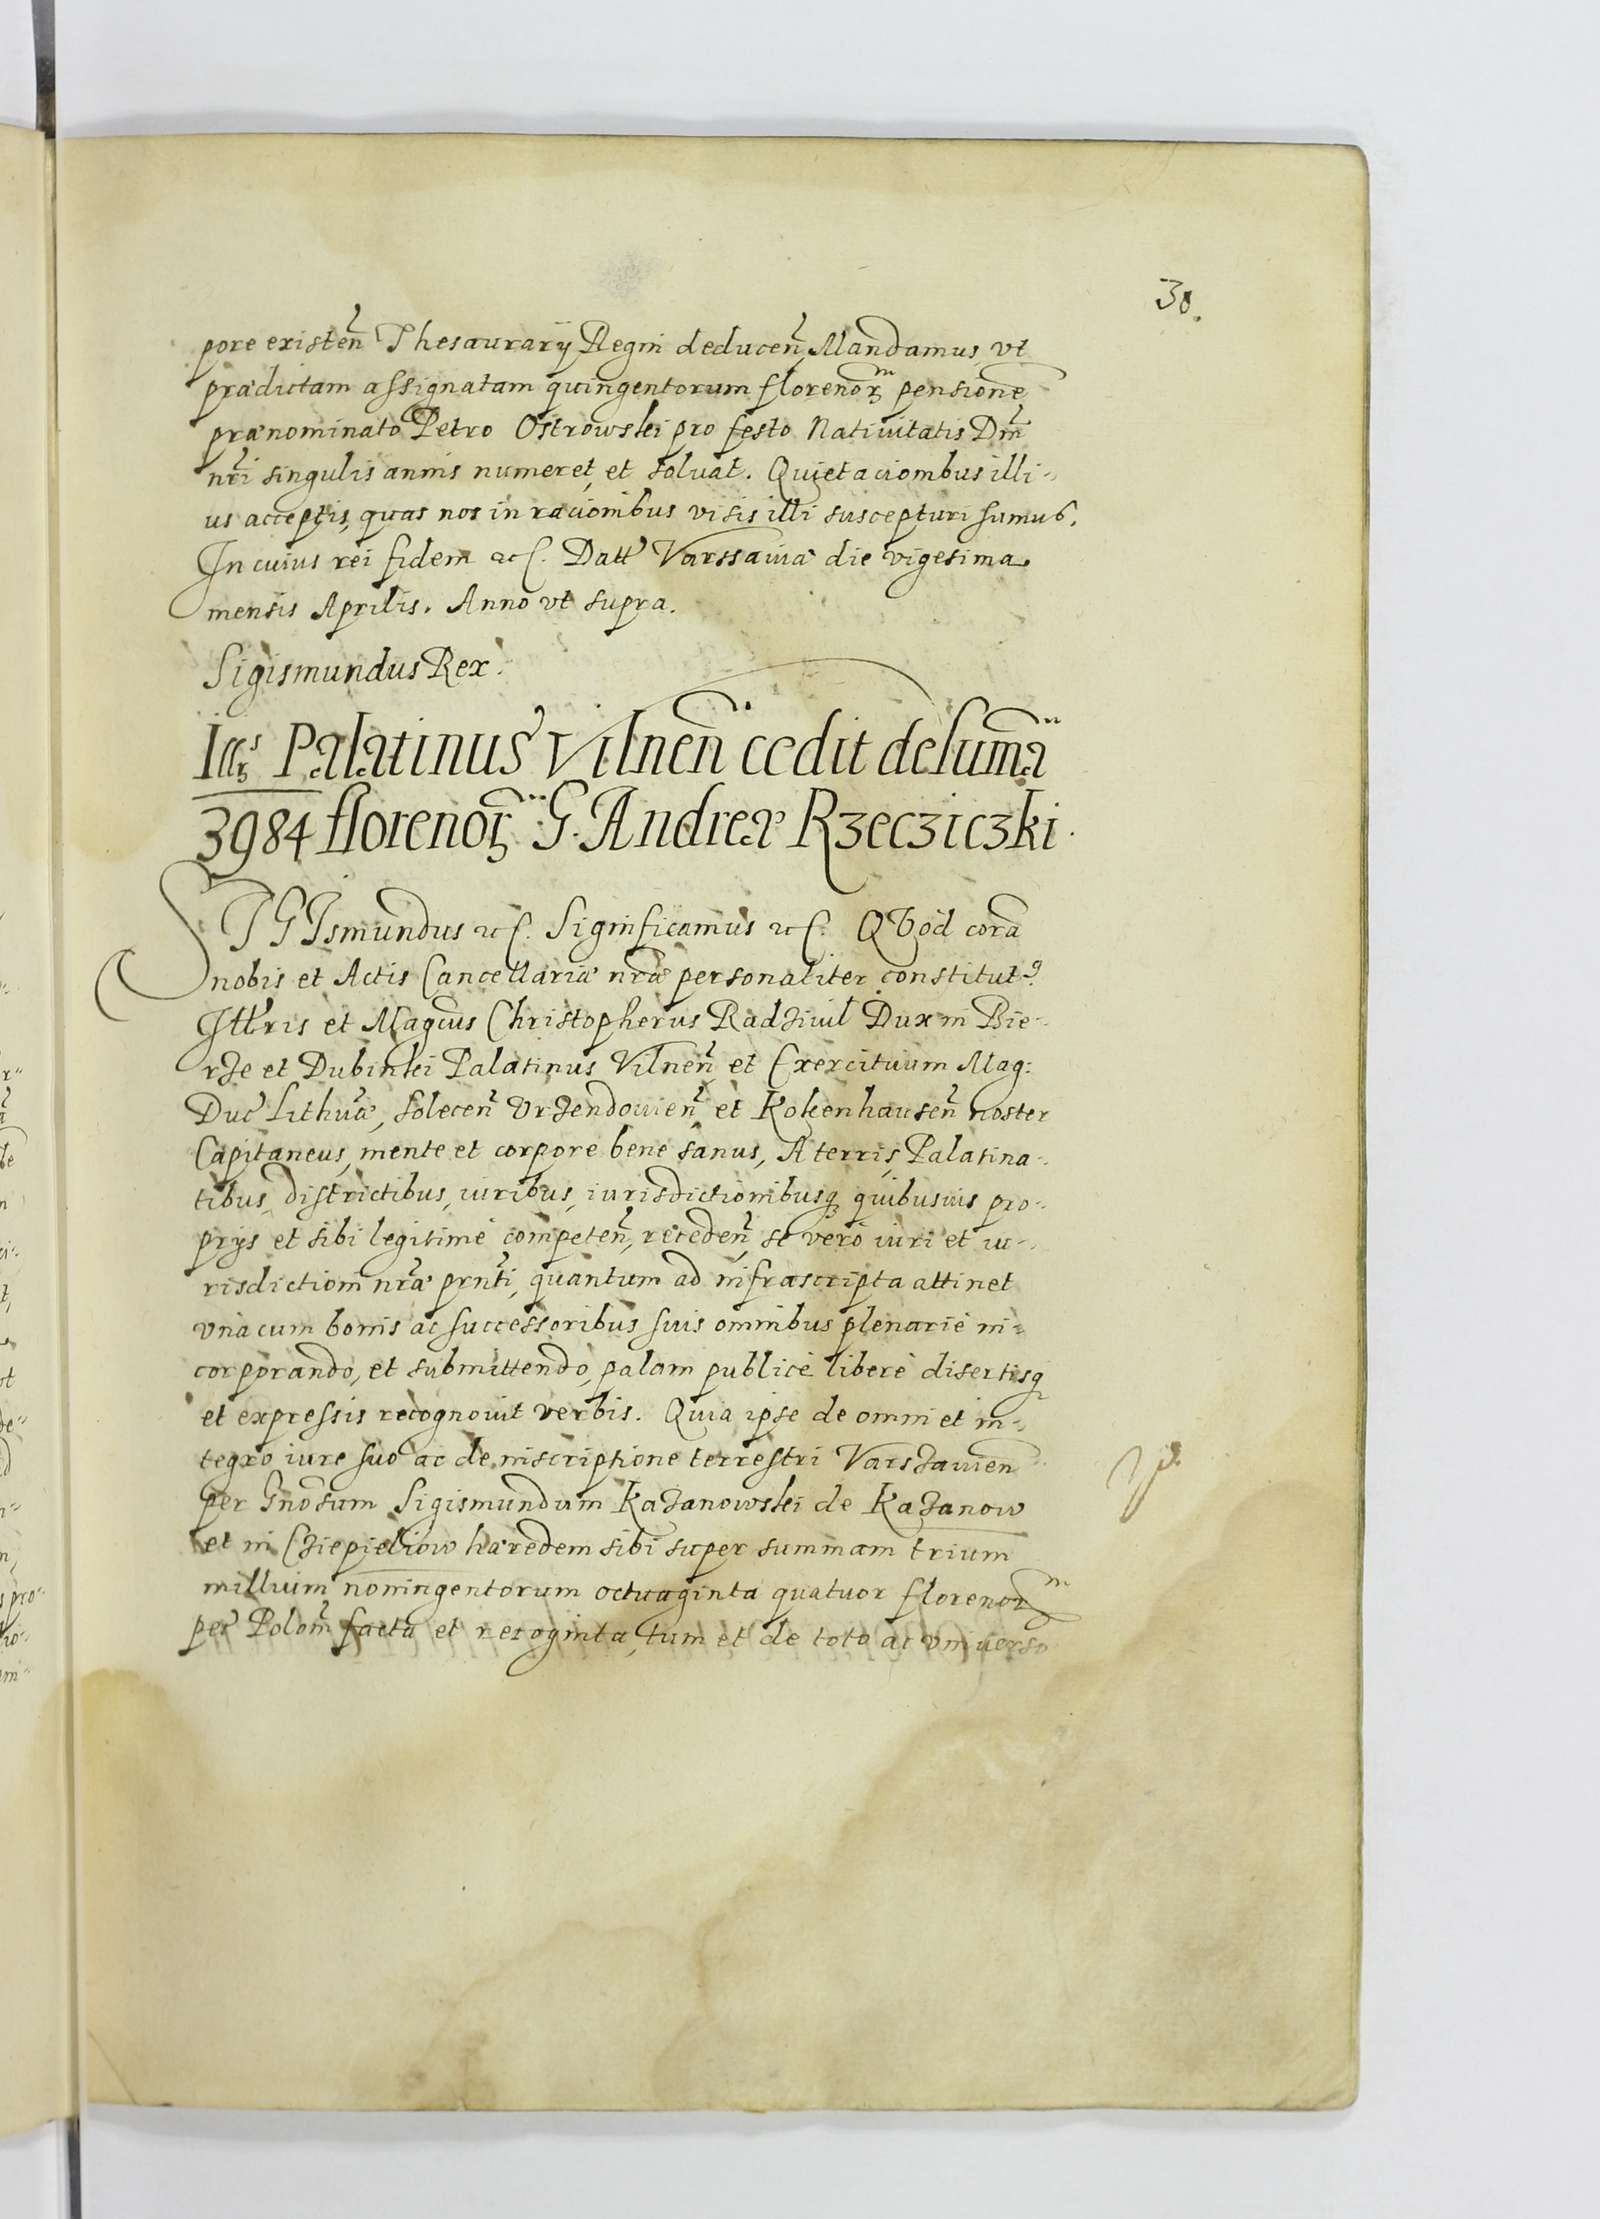 30.
pore existen Thesaurarij Regni deducen, Mandamus, vt
prædictam assignatam quingentorum florenorum pensione
prænominato Petro Ostrowski pro festo Natiuitatis Dni
nri singulis annis numeret, et soluat. Quietacionibus illi-
us acceptis, quas nos in racionibus visis illi suscepturi sumus.
In cuius rei fidem etc. Datt Varssauiæ die vigesima
mensis Aprilis. Anno vt supra.
Sigismundus Rex.
Illrs Palatinus Vilnen cedit de suma
3984 florenorum G. Andreæ Rzecziczki.
SIGIsmundus etc. Significamus etc. QVod cora
nobis et Actis Cancellariæ nræ personaliter constitut9
Illris et Magcus Christopherus Radziuil Dux in Bie-
rze et Dubinki Palatinus Vilnen et Exercituum Mag:
Duc Lithuæ, Solecen Vrzendouien et Kokenhausen noster
Capitaneus, mente et corpore bene sanus, A terris, Palatina-
tibus, districtibus, iuribus, iurisdictionibusq quibusuis pro-
prijs et sibi legitimè competen, receden, se verò iuri et iu-
risdictioni nræ prnti, quantum ad infrascripta attinet
vna cum bonis ac successoribus suis omnibus plenariè in-
corporando, et submittendo, palam publicè liberè disertisq
et expressis recognouit verbis. Quia ipse de omni et in-
tegro iure suo ac de inscriptione terrestri Varszauien
per Gnosum Sigismundum Kazanowski de Kazanow
et in Cziepielow hæredem sibi super summam trium
millium noningentorum octuaginta quatuor florenorum
per Polon facta et recognita, tum et de toto ac vniuerso